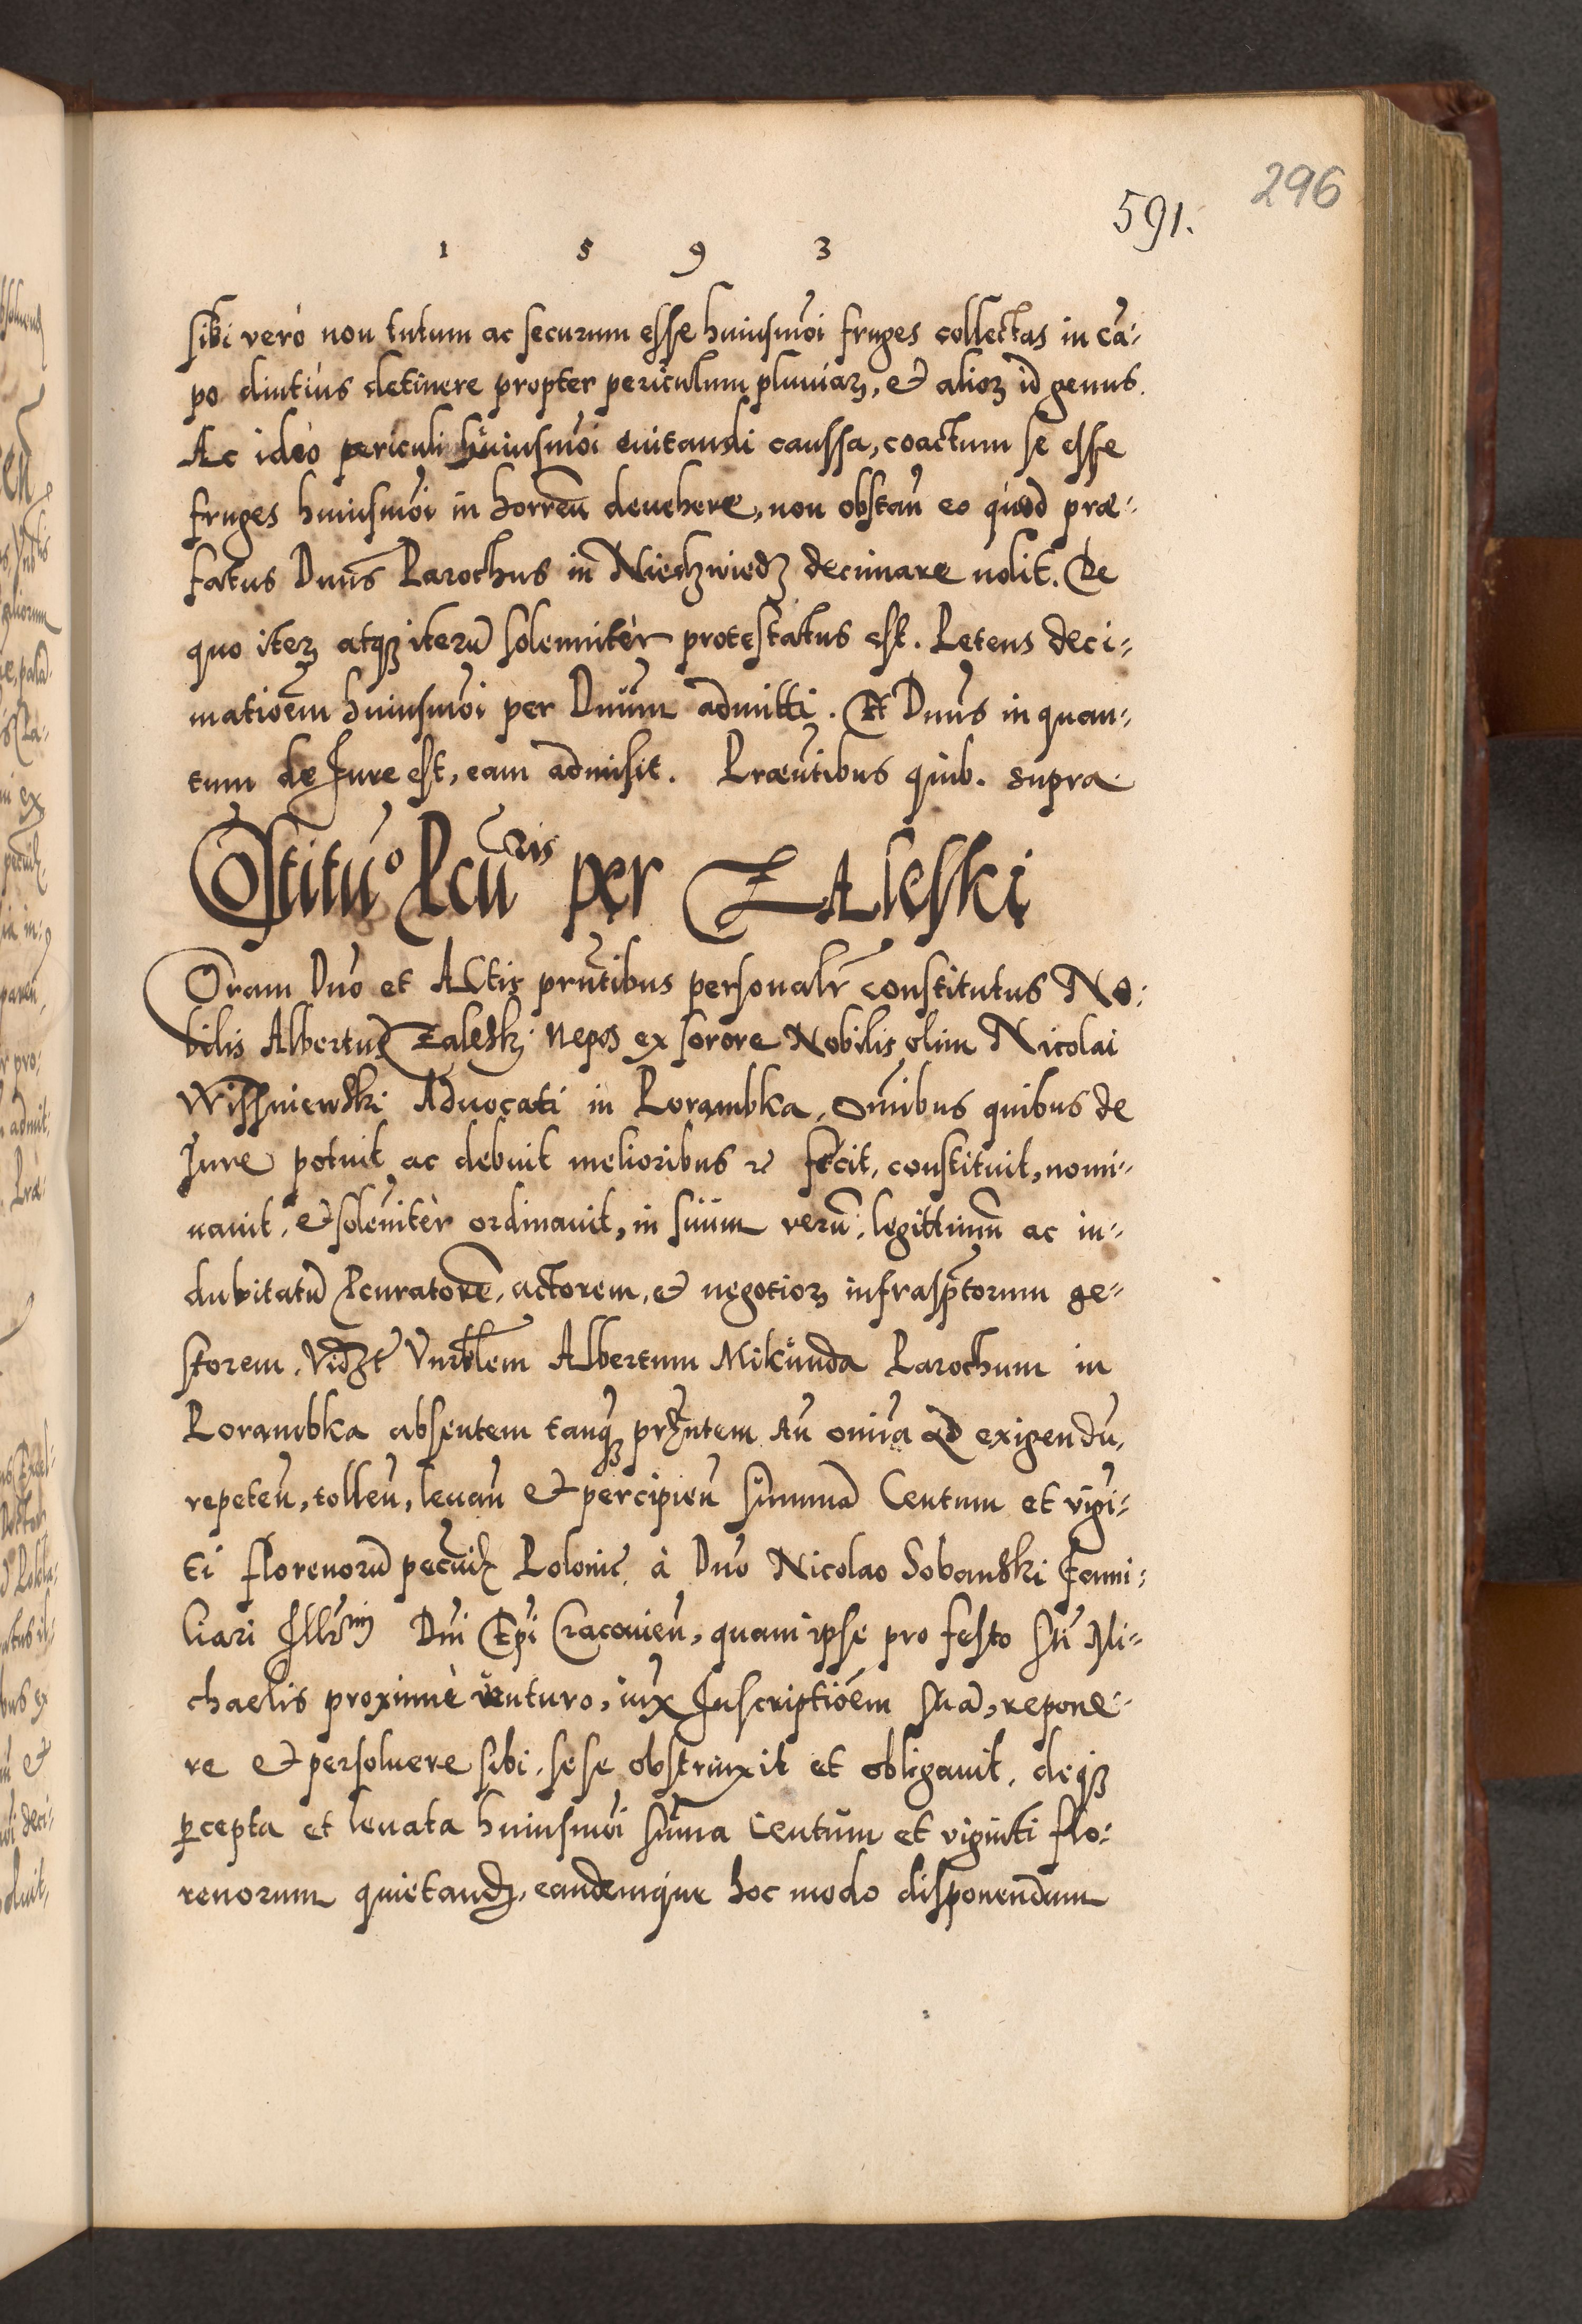 296
591.
1 5 9 3
sibi verò non tutum ac securum esse huiusmõi fruges collectas in cã-
po diutius detinere propter periculum pluuiaꝝ, et alioꝝ id genus.
Ac ideò periculi huiusmõi euitandi caussa, coactum se esse
fruges huiusmõi in horreũ deuehere, non obstañ eo quod præ-
fatus Dnũs Parochus in Niedzwiedz decimare nolit. De
quo iteꝝ atqꝫ iterũ solemnitèr protestatus est. Petens deci-
matiõem huiusmõi per Dnũm admitti. Et Dnũs in quan-
tum de Jure est, eam admisit. Præũtibus quib. supra
Cõstitũo Pcũris per Zaleski
Coram Dnõ et Actis prñtibus personalr̃ constitutus No-
bilis Albertus Zaleski Nepos ex sorore Nobilis olim Nicolai
Wissniewski Aduocati in Porambka, omĩbus quibus de
Jure potuit ac debuit melioribus &c fecit, constituit, nomi-
nauit, et solẽnitèr ordinauit, in suum verũ, legittimũ ac in-
dubitatũ Pcuratorẽ, actorem, et negotioꝝ infrasp̃torum ge-
storem. Vidzt Vnrblem Albertum Mikunda Parochum in
Porambka absentem tanqꝫ prñtem Añ omĩa ad exigendũ,
repeteñ, tolleñ, leuañ et percipieñ summã Centum et vigĩ-
ti florenorũ pecũiꝝ Polonic̃ à Dnõ Nicolao Sobanski Fami-
liari Illr̃mi Dnĩ Ep̃i Cracouieñ, quam ipse pro festo Stĩ Mi-
chaelis proximè venturo, iux̃ Inscriptiõem suã, repone-
re et persoluere sibi, sese obstrinxit et obligauit, deqꝫ
ꝑcepta et leuata huiusmõi sũma Centum et viginti flo-
renorum quietandꝫ, eandemque hoc modo disponendum